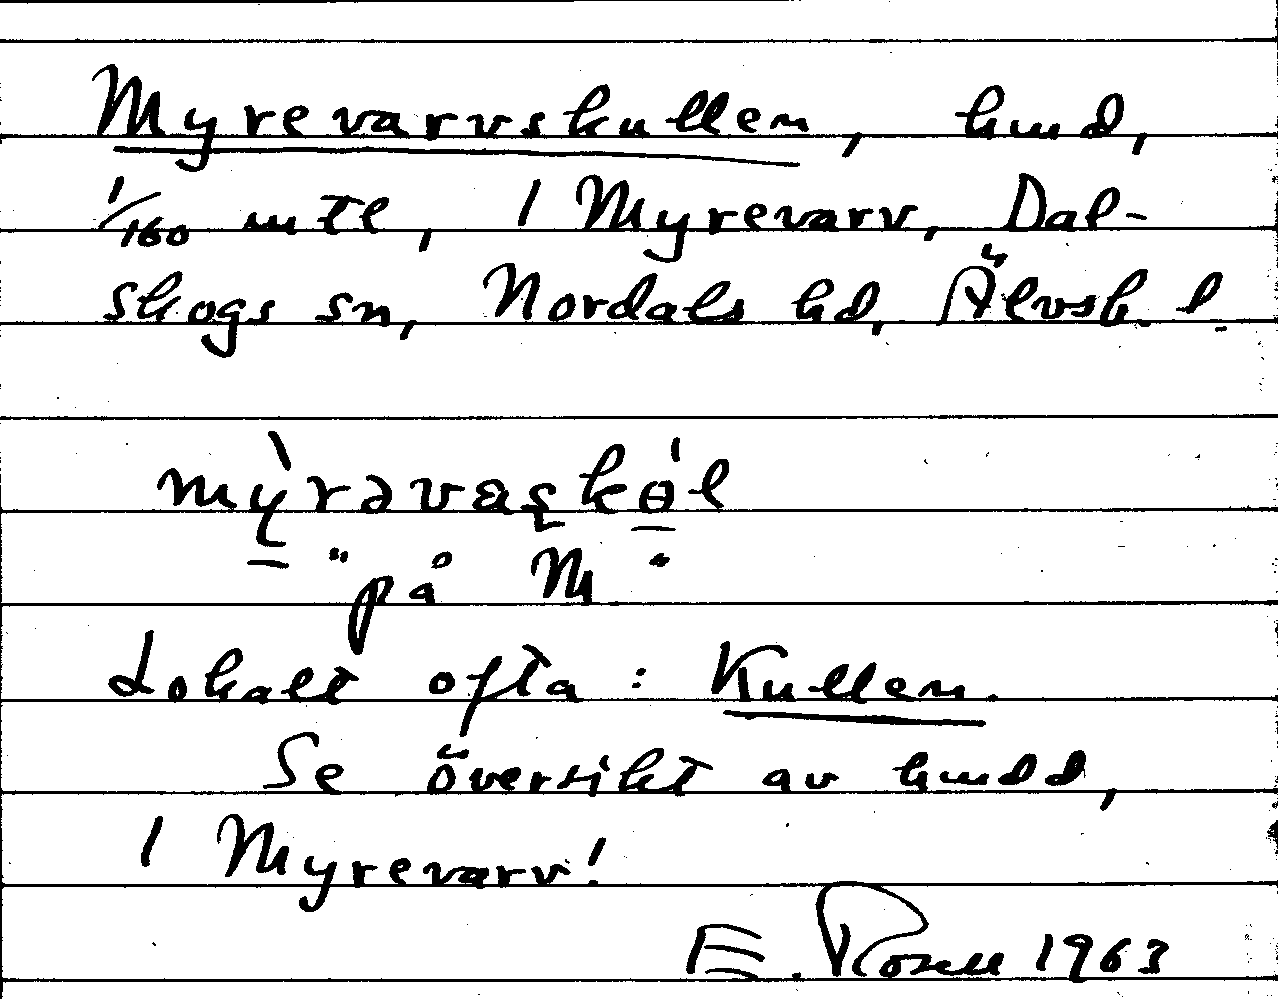 Myrevarvskullen, hmd,
1/160 mtl, 1 Myrevarv, Dal-
skogs sn, Nordals hd, Älvsb. l.
mỳrəvaşkɵ́l
"på M"
Lokalt ofta: Kullen.
Se översikt av hmdd,
1 Myrevarv!
E. Rosell 1963